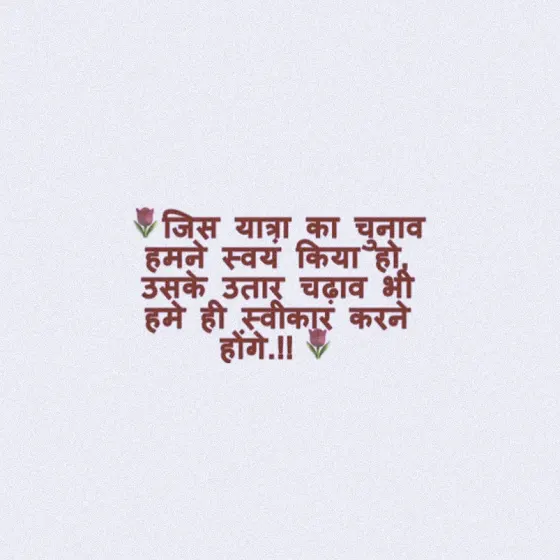 🌷जिस यात्रा का चुनाव
हमने स्वयं किया हो,
उसके उतार चढ़ाव भी
हमे ही स्वीकार करने
होंगे.!! 🌷